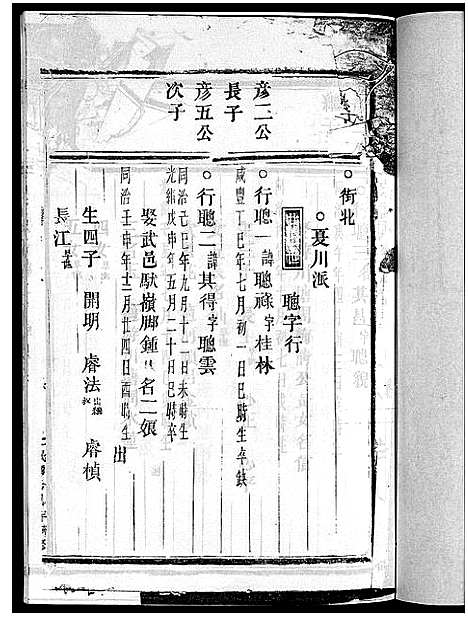 ○街北
○夏川派
聰字行
彦二公
長子
○行聰一諱聰祿字桂林
咸豐丁巳年七月初一日巳時生卒缺
彦五公
次子
○行聰二諱其得字聰雲
同治己巳年九月十一日未時生
光緒戊申年五月二十日巳時卒
娶武邑馱嶺脚鍾氏名二娘
同治壬申年十二月廿四日酉時生
出
生四子 開明 睿法出繼 睿楨
長江